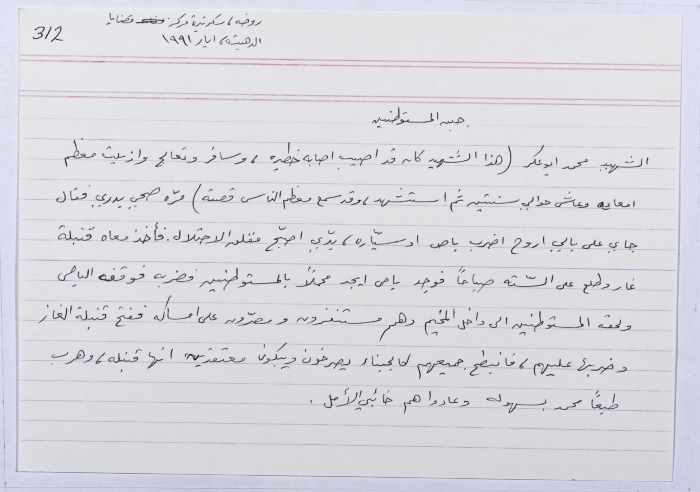 312
روضه، سكرتيرة مركز قضايا
الدهيشة، ايار ١٩٩١
جبن المستوطنين
الشهيد محمد ابوعكر (هذا الشهيد كان قد اصيب اصابه خطيره، وسافر وتعالج وازيلت معظم
امعاءه وعاش حوالي سنتين ثم استشهد، وقد سمع معظم الناس قصته) مرّه صحي بدري فقال
جاي على بالي اروح اضرب باص او سيّاره، بدّي اصبّح الاحتلال. فأخذ معاه قنبلة
غاز وطلع على السّته صباحًا فوجد باص ايجد محملاً بالمستوطنين فضربه فوقفه الباص
ولحقه المستوطنين الى داخل المخيم وهم مستنفزون ومصرّون على امساكه ففتح قنبلة الغاز
وضربها عليهم، فانبطح جميعهم كالجبناء يصرخون ويبكون معتقدين انها قنبله، وهرب
طبعًا محمد بسهوله وعادوا هم خائبي الأمل.